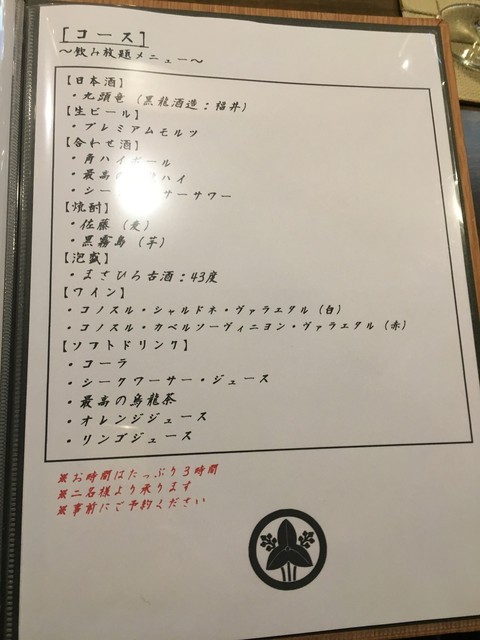 [コース]
～飲み放題メニュー～
【日本酒】
・九頭竜 (黒龍酒造：福井)
【生ビール】
・プレミアムモルツ
【合わせ酒】
・角ハイボール
・最高の ハイ
・シー サーサワー
【焼酎】
・佐藤 (麦)
・黒霧島 (芋)
【泡盛】
・まさひろ古酒：43度
【ワイン】
・コノスル・シャルドネ・ヴァラエタル (白)
・コノスル・カベルソーヴィニヨン・ヴァラエタル (赤)
【ソフトドリンク】
・コーラ
・シークワーサー・ジュース
・最高の烏龍茶
・オレンジジュース
・リンゴジュース
※お時間はたっぷり3時間
※二名様より承ります
※事前にご予約ください